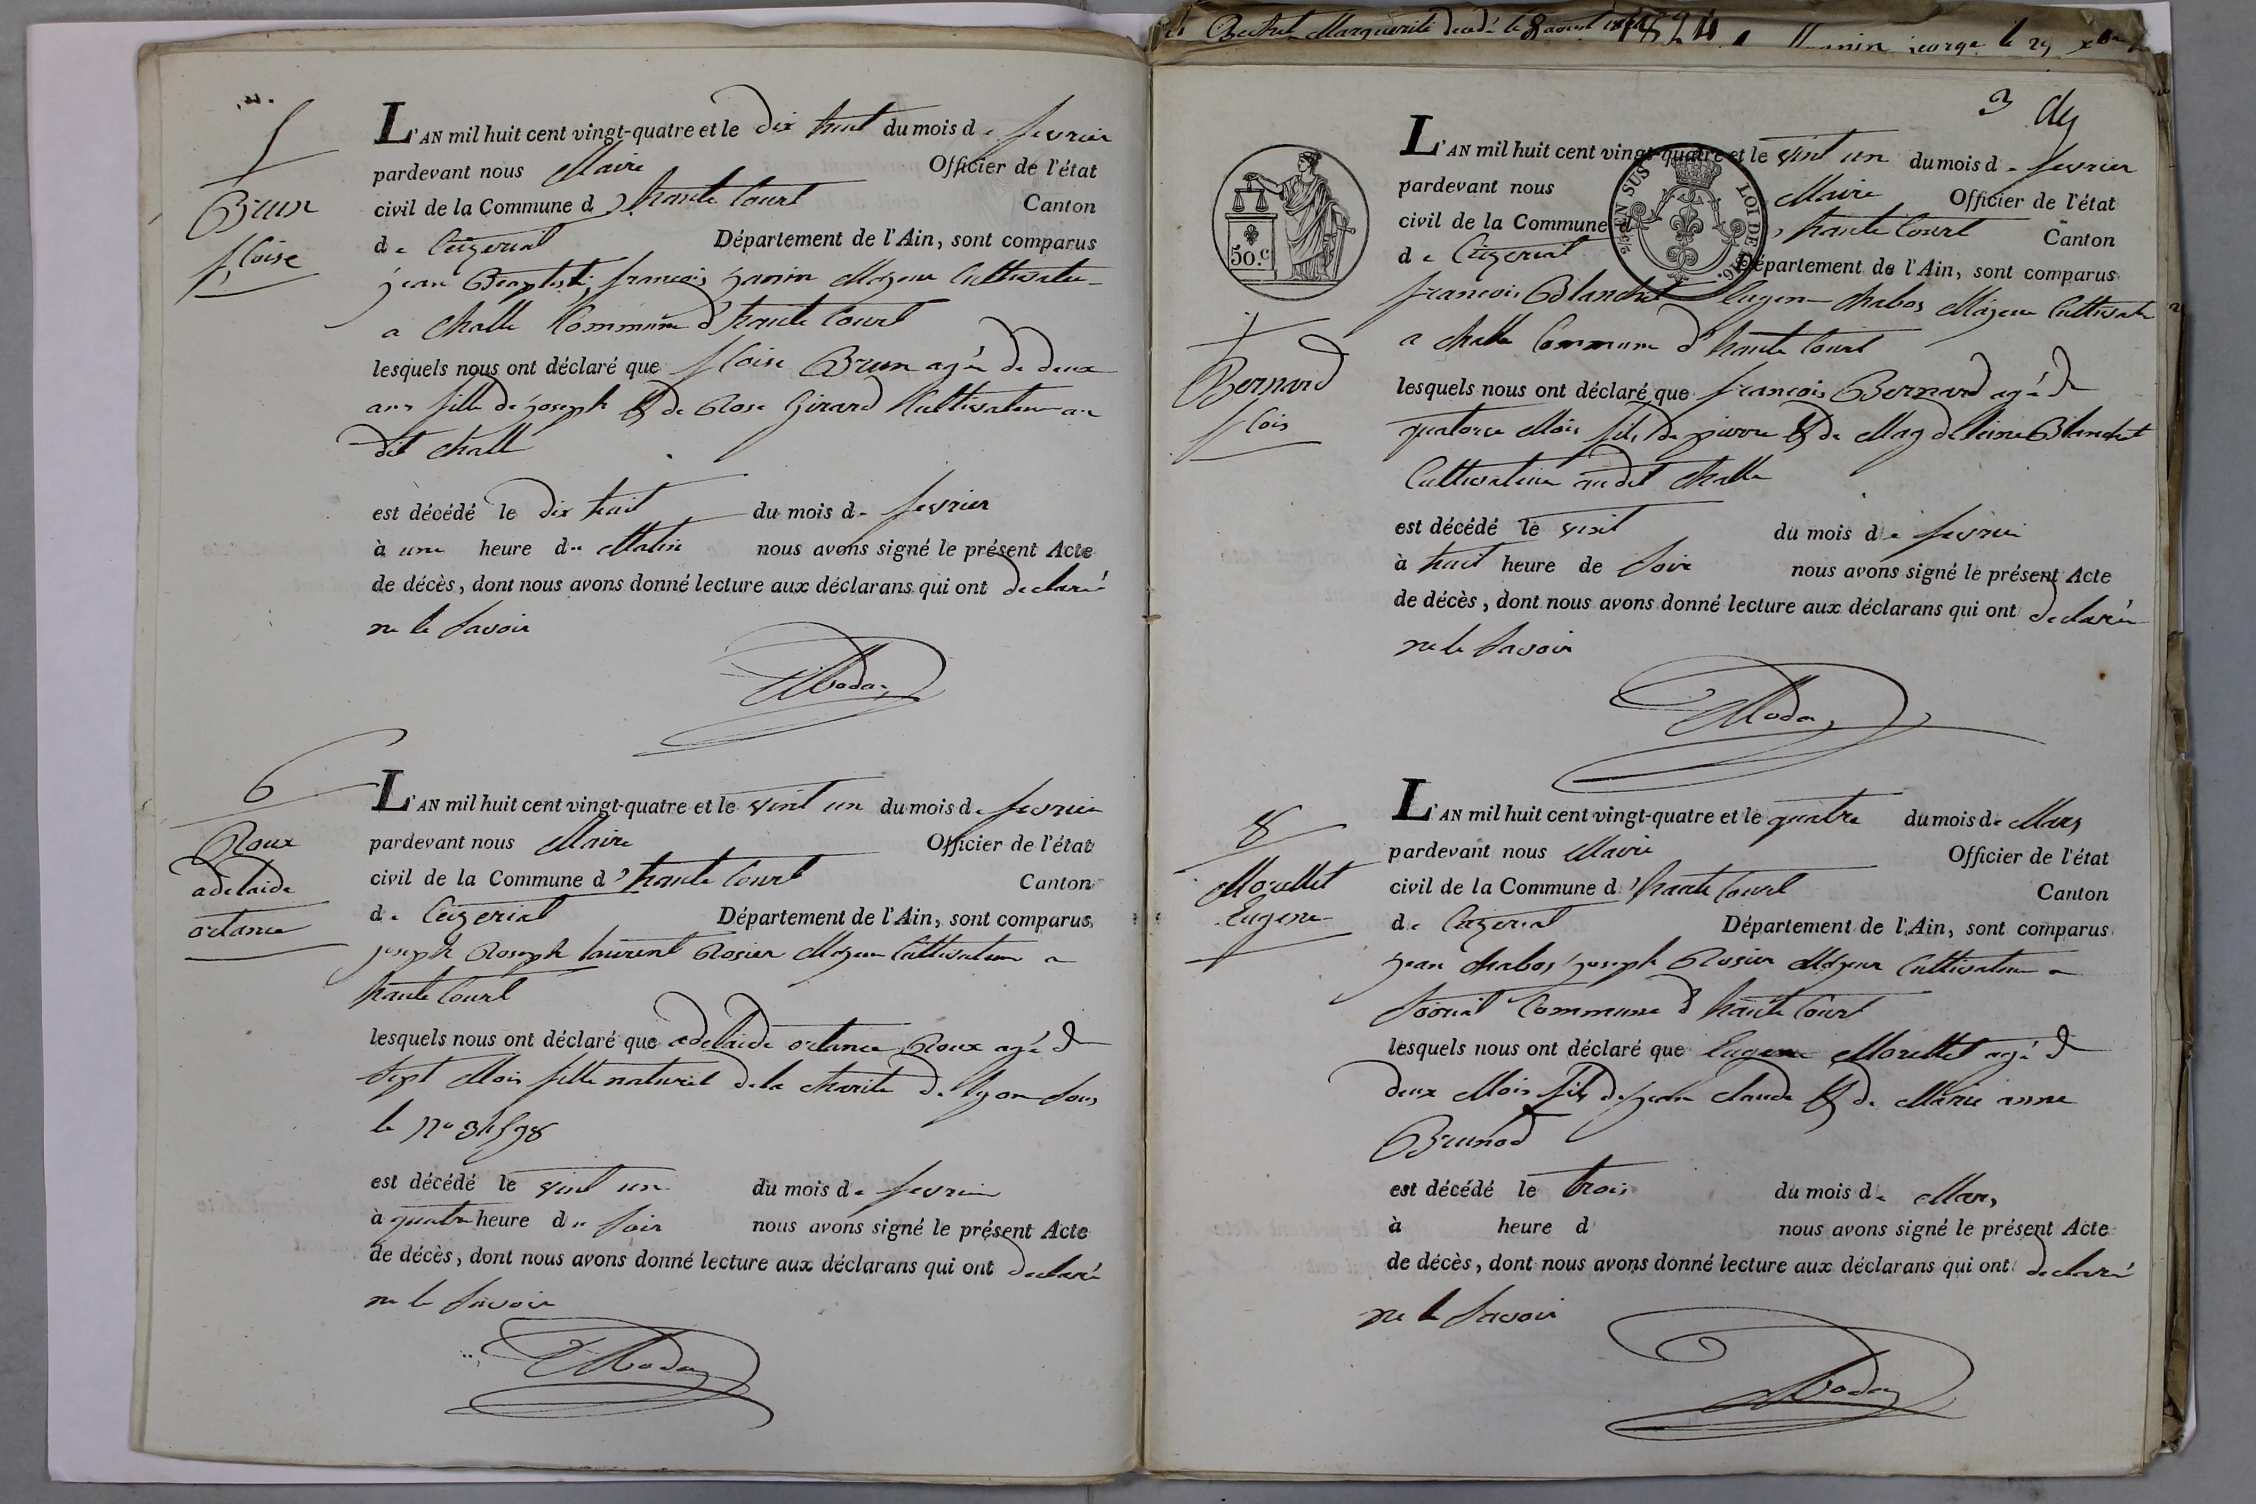 5
Brun
fcoise
L'AN mil huit cent vingt-quatre et le dix huit du mois de fevrier
pardevant nous Maire Officier de l'état
civil de la Commune d'haute Court Canton
de Ceizeriat Département de l'Ain, sont comparus
jean Baptiste, françois janin Majeur Cultivateur
a challe Commune d'haute Court
lesquels nous ont déclaré que fcoise Brun agée de deux
ans fille de joseph & de Rose Girard Cultivateur au
dit challe
est décédé le dix huit du mois de fevrier
à une heure du Matin nous avons signé le présent Acte
de décès, dont nous avons donné lecture aux déclarans qui ont declaré
ne le savoir
6
Roux
adelaide
octance
L'AN mil huit cent vingt-quatre et le vint un du mois de fevrier
pardevant nous Maire Officier de l'état
civil de la Commune d'haute Court Canton
de Ceizeriat Département de l'Ain, sont comparus
joseph laurent Rosier Majeur Cultivateur a
haute Court
lesquels nous ont déclaré que adelaide octance Roux agée de
sept Mois fille naturel de la charite de lyon sous
le No
est décédé le vint un du mois de fevrier
à quatre heure du soir nous avons signé le présent Acte
de décès, dont nous avons donné lecture aux déclarans qui ont declaré
ne le savoir
Bechet Marguerite decedé le 8 aoust 1824 george le 29
3
50.c
EN SUS
LOI DE
7
Bernard
fcois
L'AN mil huit cent vingt-quatre et le vint un du mois de fevrier
pardevant nous Maire Officier de l'état
civil de la Commune d'haute Court Canton
de Ceizeriat Département de l'Ain, sont comparus
francois Blanchet Eugene chabos Majeur Cultivateur
a challe Commune d'haute Court
lesquels nous ont déclaré que francois Bernard agé de
quatorze Mois fils de pierre & de Magdeleine Blanchet
Cultivateur au dit challe
est décédé le vint du mois de fevrier
à huit heure de soir nous avons signé le présent Acte
de décès, dont nous avons donné lecture aux déclarans qui ont declaré
ne le savoir
8
Morellet
Eugene
L'AN mil huit cent vingt-quatre et le quatre du mois de Mars
pardevant nous Maire Officier de l'état
civil de la Commune d'haute Court Canton
de Ceizeriat Département de l'Ain, sont comparus
jean chabos joseph Rosier Majeur Cultivateur a
Commune d'haute Court
lesquels nous ont déclaré que Eugene Morellet agé de
deux Mois fils de jean claude & de Marie anne
Brunod
est décédé le trois du mois de Mars
à heure d nous avons signé le présent Acte
de décès, dont nous avons donné lecture aux déclarans qui ont declaré
ne le savoir